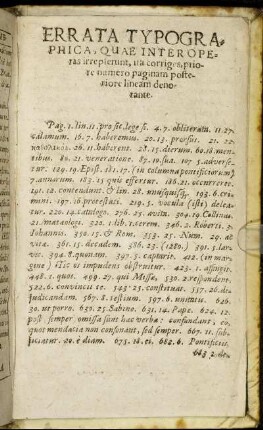 ERRATA TYPOGRA-
PHICA, QUAE INTER OPE-
ras irrepserunt, ita corriges, prio-
re numero paginam poste-
riore lineam deno-
tante.
Pag. 2. lin. 11. pro sic lege si. 4. 7. obliteratū. 11. 27.
calamum. 16. 7. haberemus. 20. 13. prorsus. 21. 22.
26. 11. haberent. 28. 15. dierum. 60. 18. men-
tibus. 80. 21. veneratione. 89. 10. sua. 107. 3. adverse-
tur. 129. 19. Epist. 181. 17. (in columna pontificiorum)
7. annorum. 183. 15 quis efferret. 186. 21. occurrere.
191. 12. contendunt. & lin. 28. 193. 6. cri-
mini. 197. 16. protestari. 219. 5. vocula (isti) delea-
tur. 220. 14. catalogo. 276. 25. avitū. 304. 19. Collinus.
21. mataeologo. 322. 1. lib. 1. cerem. 346. 2. Roberti. 3.
Iohannis. 350. 15. & Rom. 353. 25. Num. 29. ac
vitia. 361. 15. decadem. 386. 23. (1280.) 391. 5. lar-
vis. 394. 8. quonam. 397. 5. capturis. 412. (in mar-
gine) Hic os impudens obstruitur. 423. 1. affingis.
448. 1. quot. 499. 27. qui Missa. 530. 2. respondent.
532. 6. convincis te. 543. 25. constituat. 557. 26. di-
judicandam. 567. 8. testium. 597. 6. unitatis. 626.
30. ut porro. 639. 25. Sabino. 631. 14. Papæ. 624. 12.
post semper omissa sunt hac verba: confundant; eo,
quod mendacia non consonant, sed semper. 667. 11. sub-
jiciatur. 20. è diam. 675. 18. ei. 682. 6. Pontificio.
683. 2. de.